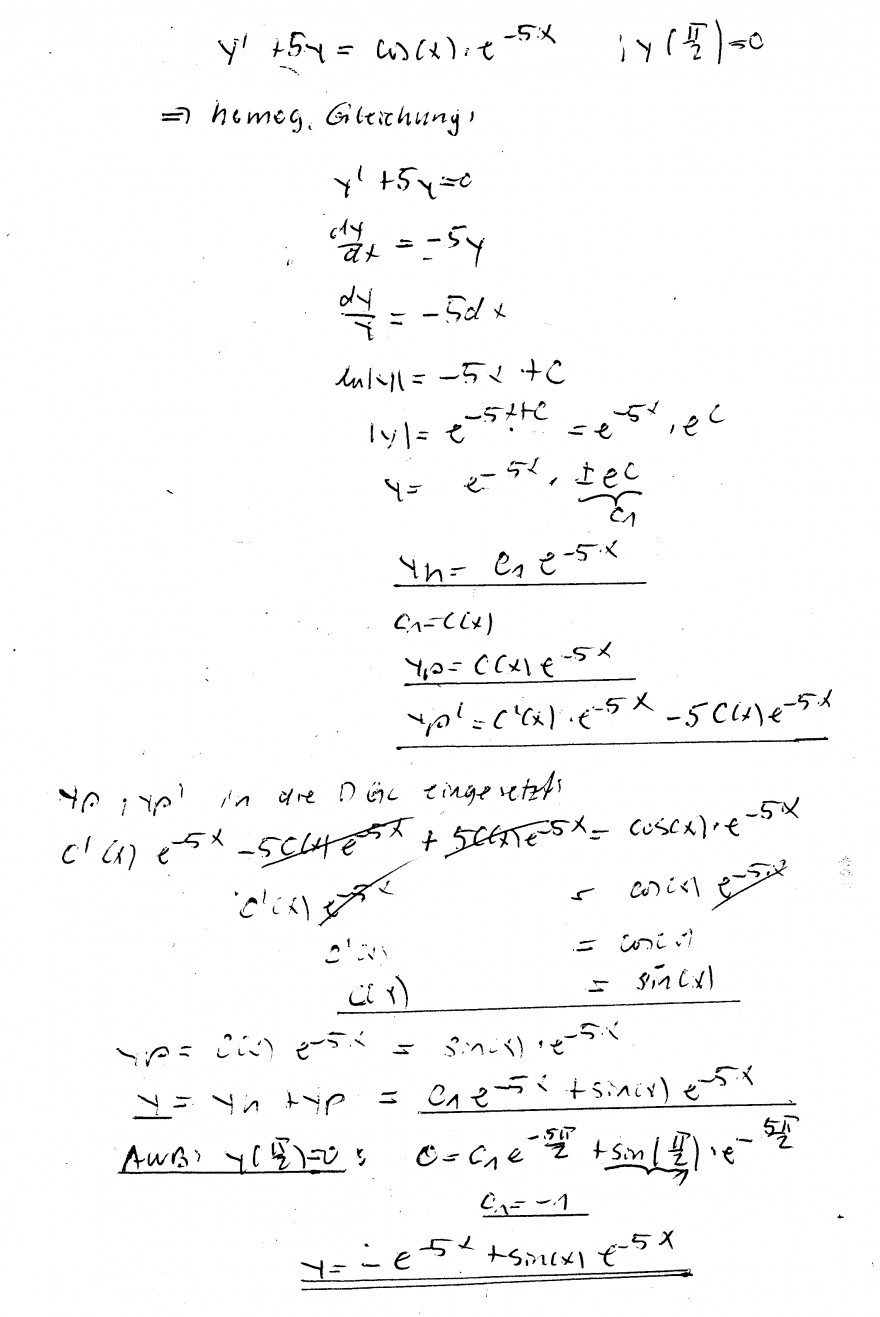 y' + 5y = cos(x)·e^{-5x} ; y(π/2)=0
⇒ homog. Gleichung:
y' + 5y = 0
dy/dx = -5y
dy/y = -5dx
ln|y| = -5x + C
|y| = e^{-5x+C} = e^{-5x}·e^C
y = e^{-5x}·±e^C
C₁
yh = C₁ e^{-5x}
C₁ = C(x)
yp = C(x) e^{-5x}
yp' = C'(x)·e^{-5x} - 5C(x)e^{-5x}
yp ; yp' in die DGL eingesetzt:
C'(x) e^{-5x} - 5C(x)e^{-5x} + 5C(x)e^{-5x} = cos(x)·e^{-5x}
C'(x) e^{-5x} = cos(x) e^{-5x}
C'(x) = cos(x)
C(x) = sin(x)
yp = C(x) e^{-5x} = sin(x)·e^{-5x}
y = yh + yp = C₁e^{-5x} + sin(x) e^{-5x}
AWB: y(π/2)=0 : 0 = C₁e^{-5π/2} + sin(π/2)·e^{-5π/2}
1
C₁ = -1
y = -e^{-5x} + sin(x) e^{-5x}